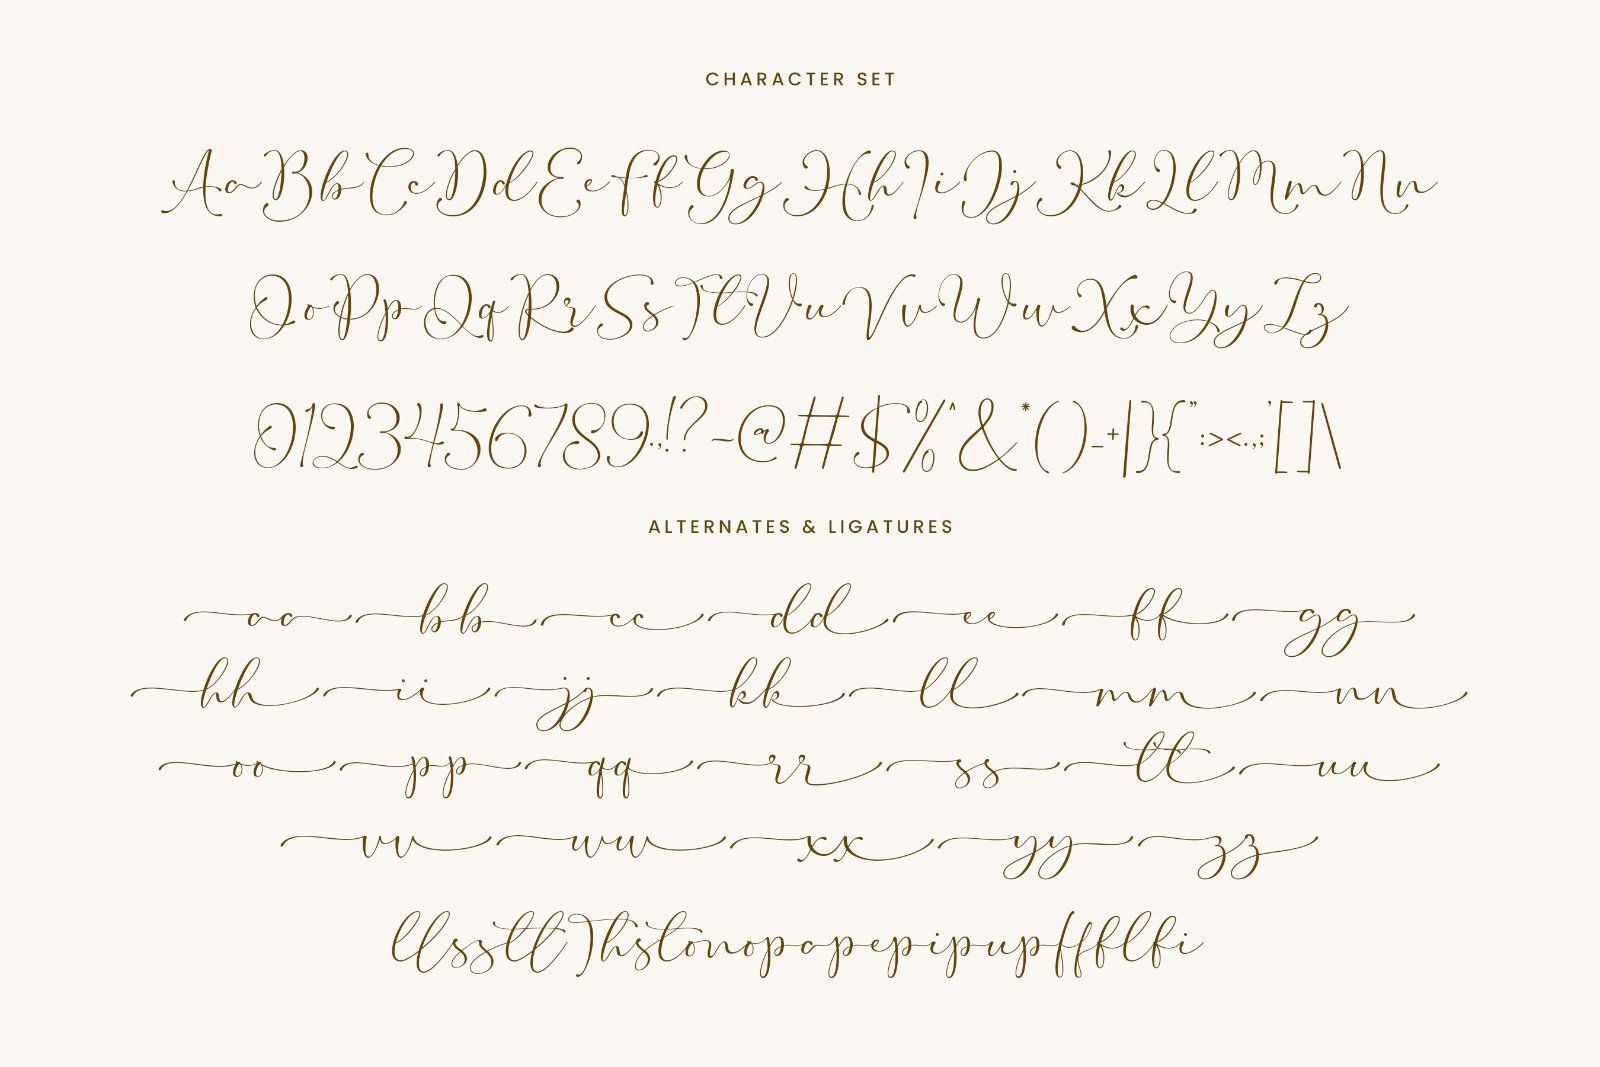 CHARACTER SET
AaBbCcDdEeFfGgHhIiJjKkLlMmNn
OoPpQqRrSsTtUuVvWwXxYyZz
0123456789.,!?-@#$%^&*()_+|}{":><.,;'[]\
ALTERNATES & LIGATURES
aa bb cc dd ee ff gg
hh ii jj kk ll mm nn
oo pp qq rr ss tt uu
vv ww xx yy zz
llssttThstonopapepipupffflfi